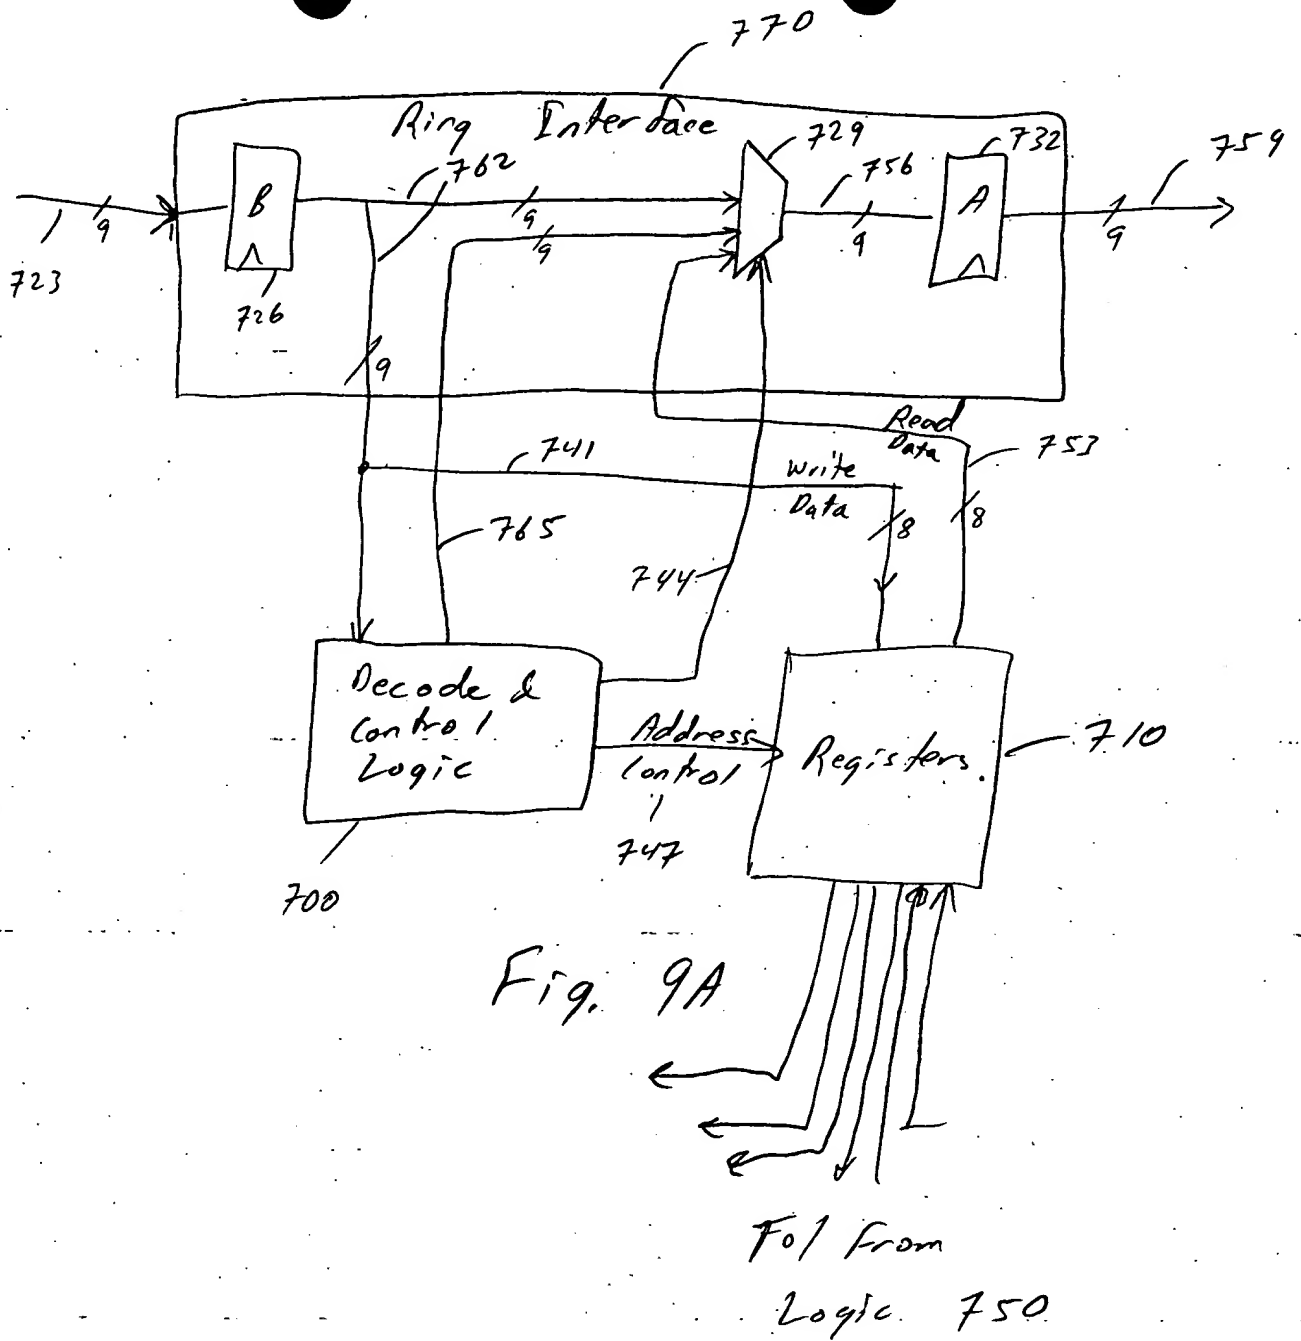 770
Ring Interface
729
732
759
762
756
B
A
9
9
9
9
9
723
726
9
Read
Data
753
741
Write
Data
8
8
765
744
Decode &
Control
Logic
Address
Control
747
Registers.
710
700
Fig. 9A
To/From
Logic 750